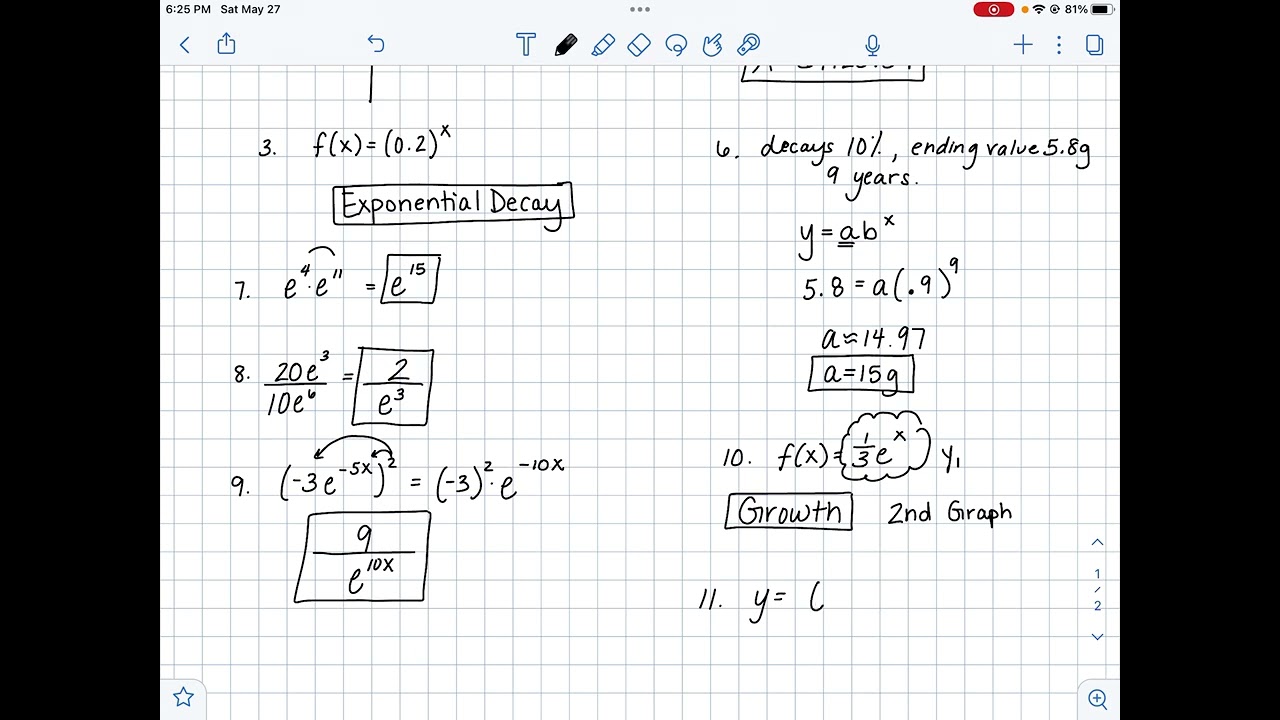 6:25 PM Sat May 27
81%
T
3. f(x) = (0.2)^x
Exponential Decay
7. e^4 · e^11 = e^15
8. 20e^3/10e^6 = 2/e^3
9. (-3e^-5x)^2 = (-3)^2 · e^-10x
9/e^10x
6. decays 10%, ending value 5.8g
9 years.
y = ab^x
5.8 = a(.9)^9
a ≈ 14.97
a = 15g
10. f(x) = 1/3 e^x y₁
Growth 2nd Graph
11. y = (
1
/
2